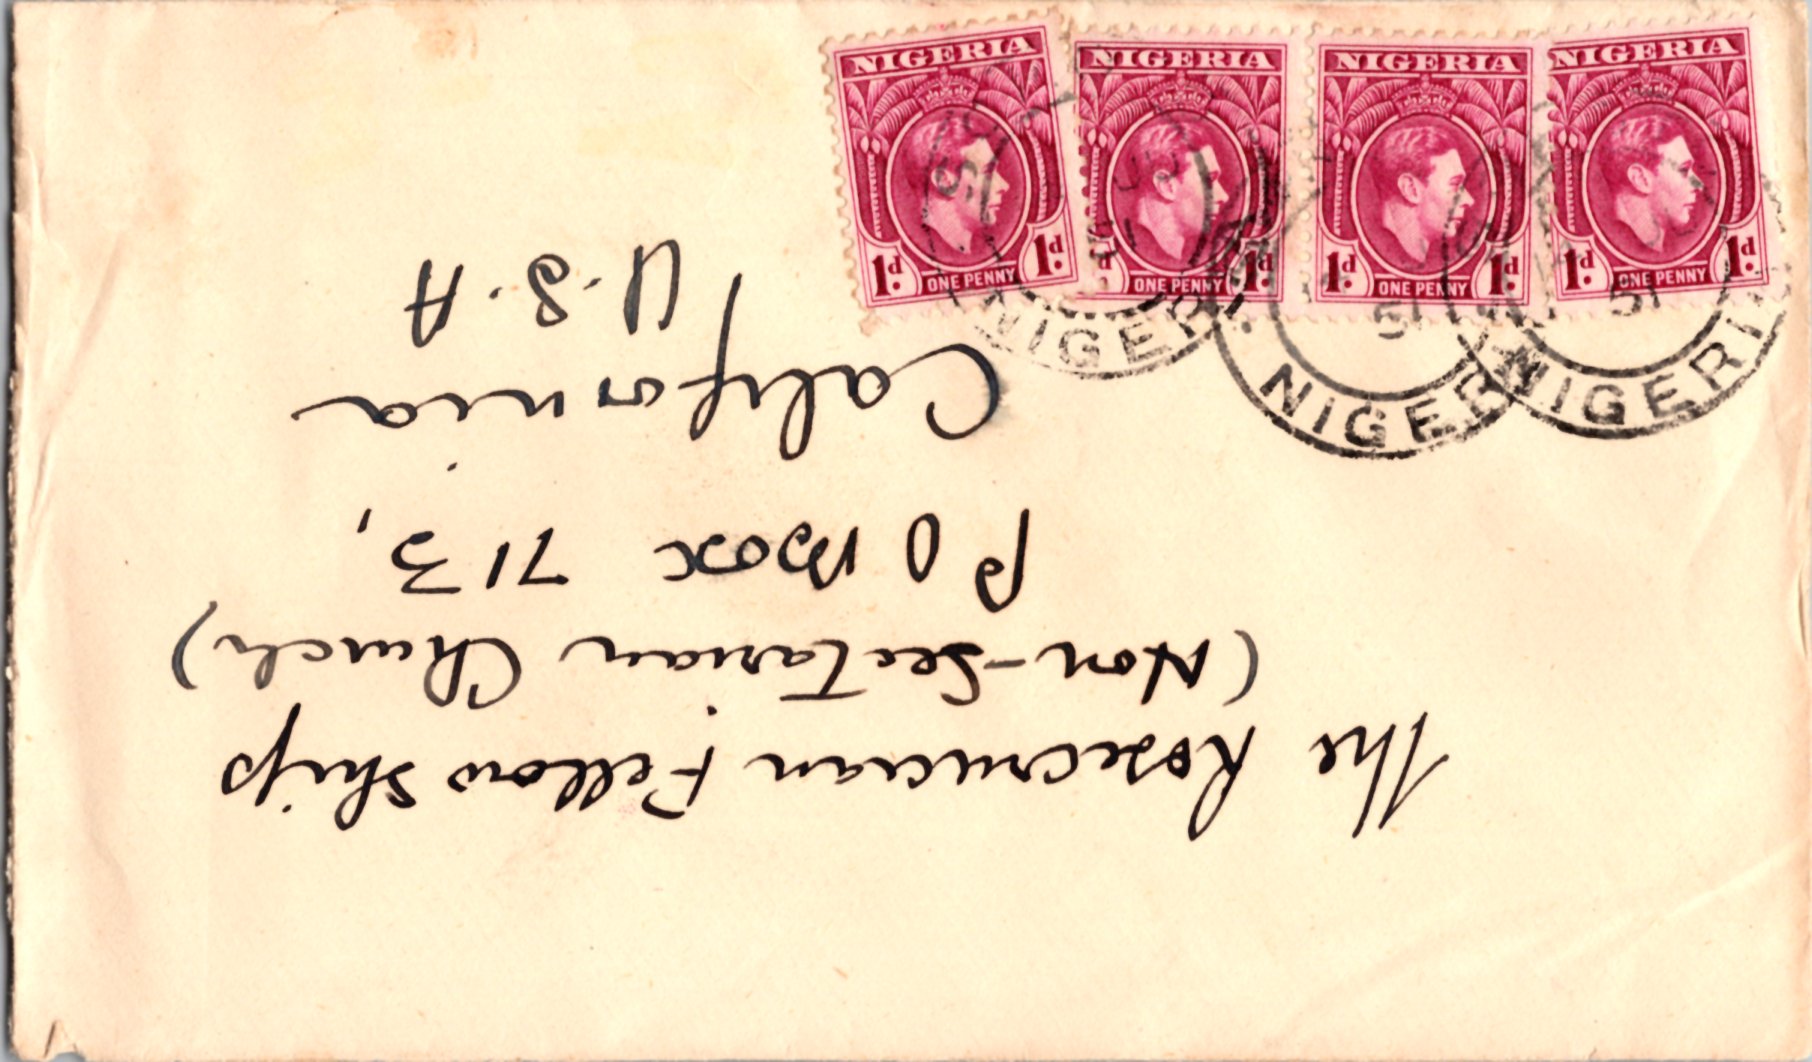 NIGERIA
1d
1d
ONE PENNY
NIGERIA
1d
1d
ONE PENNY
NIGERIA
1d
1d
ONE PENNY
NIGERIA
1d
1d
ONE PENNY
NIGERIA
51
NIGERIA
51
NIGERIA
The Rosecrucian Fellowship
(Non-Sectarian Church)
PO Box 713,
California
U.S.A